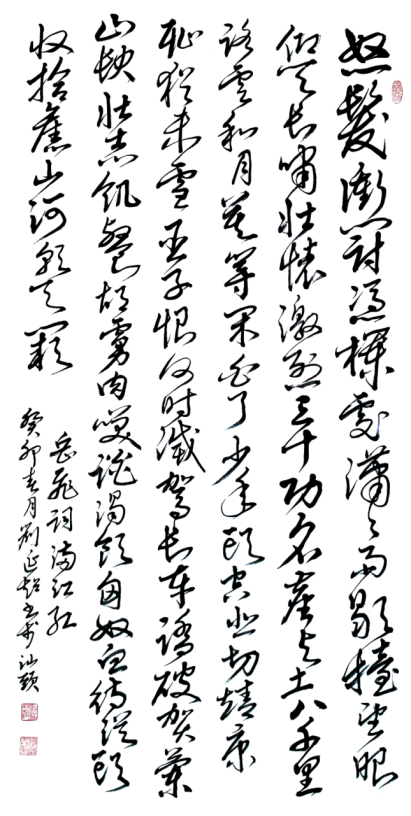 怒髮衝冠憑欄處瀟〻雨歇擡望眼
仰天長嘯壯懷激烈三十功名塵與土八千里
路雲和月莫等閒白了少年頭空悲切靖康
恥猶未雪臣子恨何時滅駕長車踏破賀蘭
山缺壯志飢餐胡虜肉笑談渴飲匈奴血待從頭
收拾舊山河朝天闕
岳飛詞滿江紅
癸卯春月劉延超書於汕頭